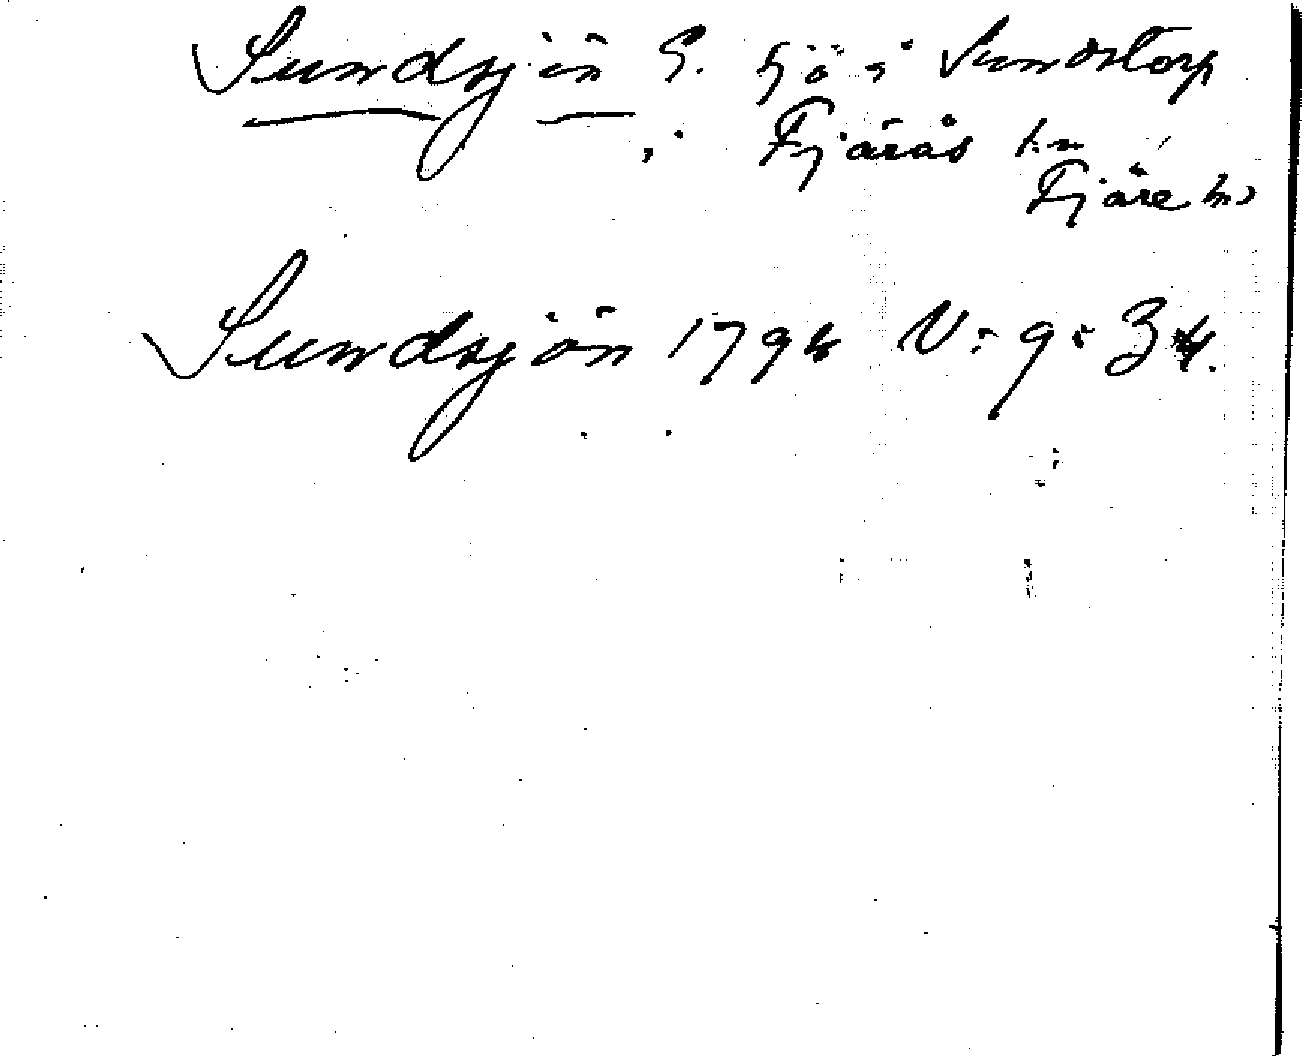 Sundsjön S. sjö i Sundstorp
i Fjärås sn
Fjäre hd
Sundsjön 1794 V: 9: 34.